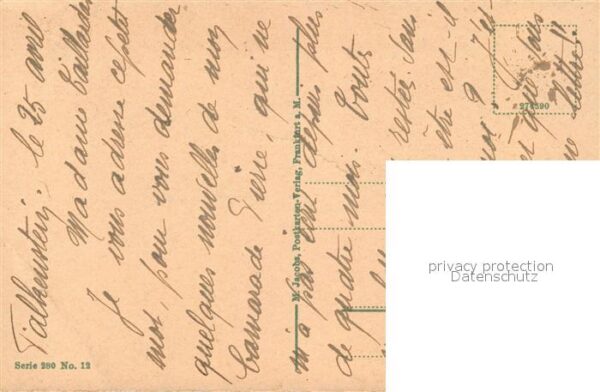 Falkenstein, le 25 avril
Madame Baillarder
Je vous adresse ce petit
mot, pour vous demander
quelques nouvelles de mon
Camarade Pierre, qui ne
m'a pas écrit depuis plus
de quatre mois. Toutes
restée sans
être est-il
et que
lettre
M. Jacobs, Postkarten-Verlag, Frankfurt a. M.
Serie 280 No. 12
276590
privacy protection
Datenschutz